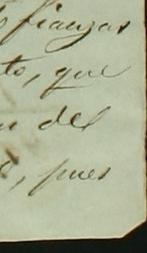 fianzas
to, que
del
, pues